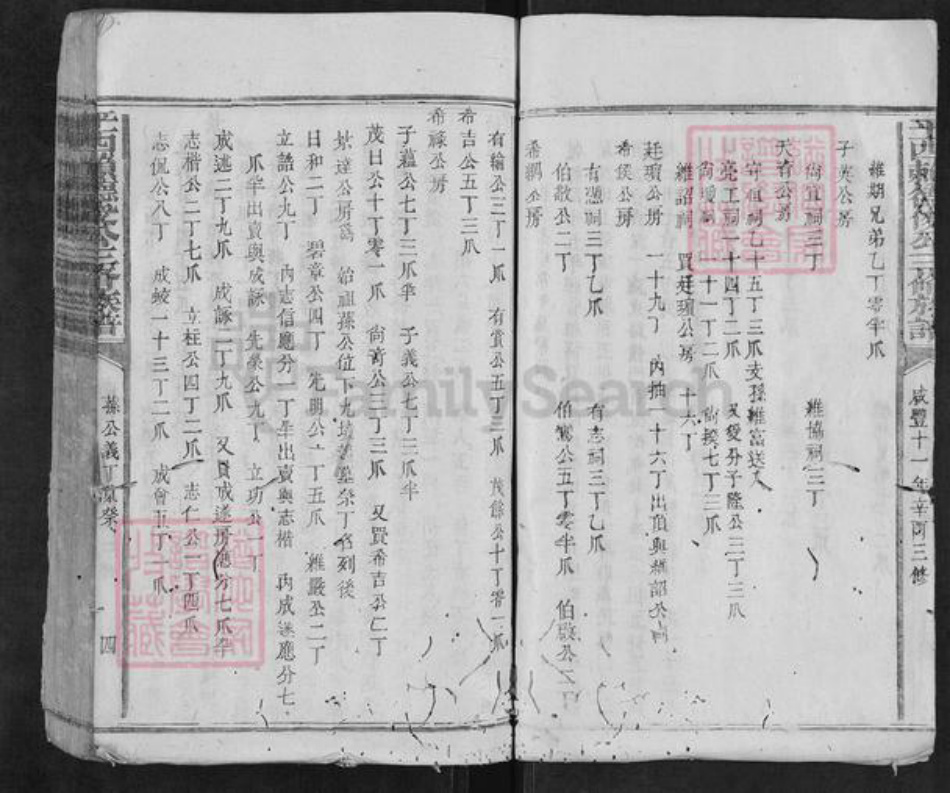 咸豐十一年辛酉三修
維期兄弟乙丁零半爪
子英公房
尚宜祠三丁 維協祠三丁
天育公房
宜祠乙十五丁三爪支孫維富送入
亮工祠一十四丁二爪 又愛分子隆公三丁三爪
尚瑗祠一十一丁二爪 尚揆七丁三爪
維詔祠 買廷璸公房一十六丁
廷璸公房 一十九丁 內抽一十六丁出頂與維詔公祠
希侯公房
有憑祠三丁乙爪 有志祠三丁乙爪
伯敬公二丁 伯鸞公五丁零半爪 伯殷公二丁
希稠公房
有輪公三丁一爪 有賞公五丁三爪 茂餘公十丁零一爪
希吉公五丁三爪
希祿公房
子蘊公七丁三爪半 子義公七丁三爪半
茂日公十丁零一爪 尚奇公二丁三爪 又買希吉公仁丁
達公房為 始祖蓀公位下九墳蓋墓榮丁名列後
日和二丁 碧章公四丁 先明公一丁五爪 維嚴公二丁
立誥公九丁 內志信應分一丁半出賣與志楷 內成遂應分七
爪半出賣與成詠 先榮公九丁 立功公一丁
成逑二丁九爪 成詠二丁九爪 又買成遂房應分七爪半
志楷公二丁七爪 立柱公四丁二爪 志仁公一丁四爪
志侃公八丁 成蛟一十三丁二爪 成會五丁一爪
蓀公義丁原榮
四
FamilySearch